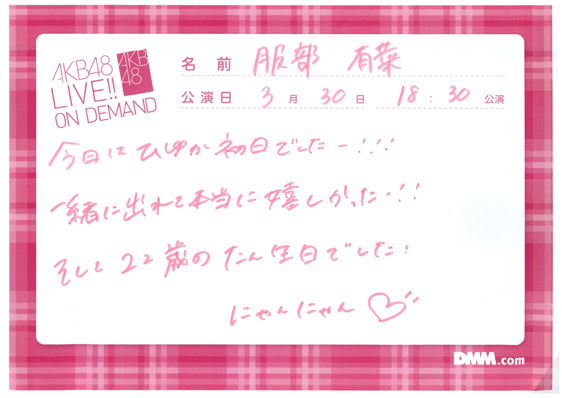 AKB48
LIVE!!
ON DEMAND
AKB
48
名前 服部 有菜
公演日 3月30日 18:30公演
今日はひゅか初日でしたー!!!
一緒に出れて本当に嬉しかったー!!
そして22歳のたん生日でした!
にゃんにゃん♡
DMM.com